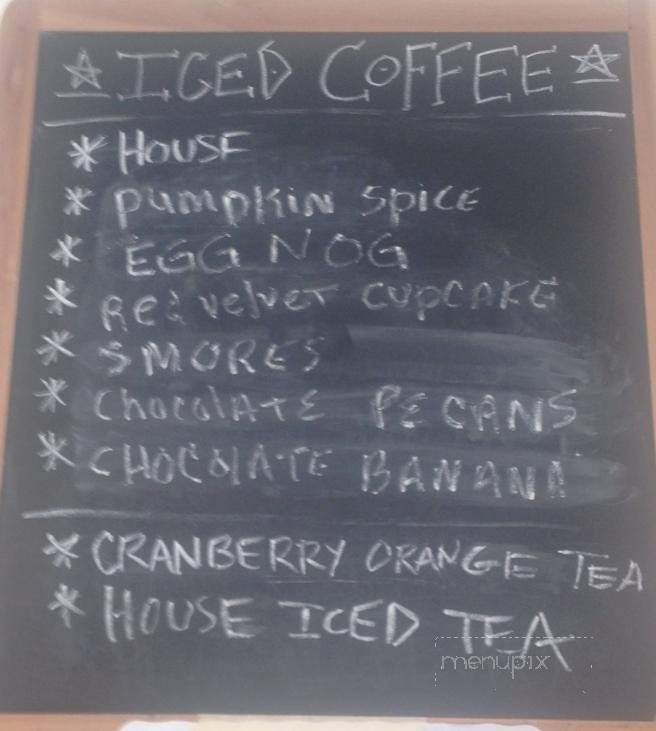 ☆ ICED COFFEE ☆
* HOUSE
* pumpkin spice
* EGG NOG
* Red velvet CUPCAKE
* SMORES
* ChocolATE PECANS
* CHOCOlATE BANANA
* CRANBERRY ORANGE TEA
* HOUSE ICED TEA
menupix